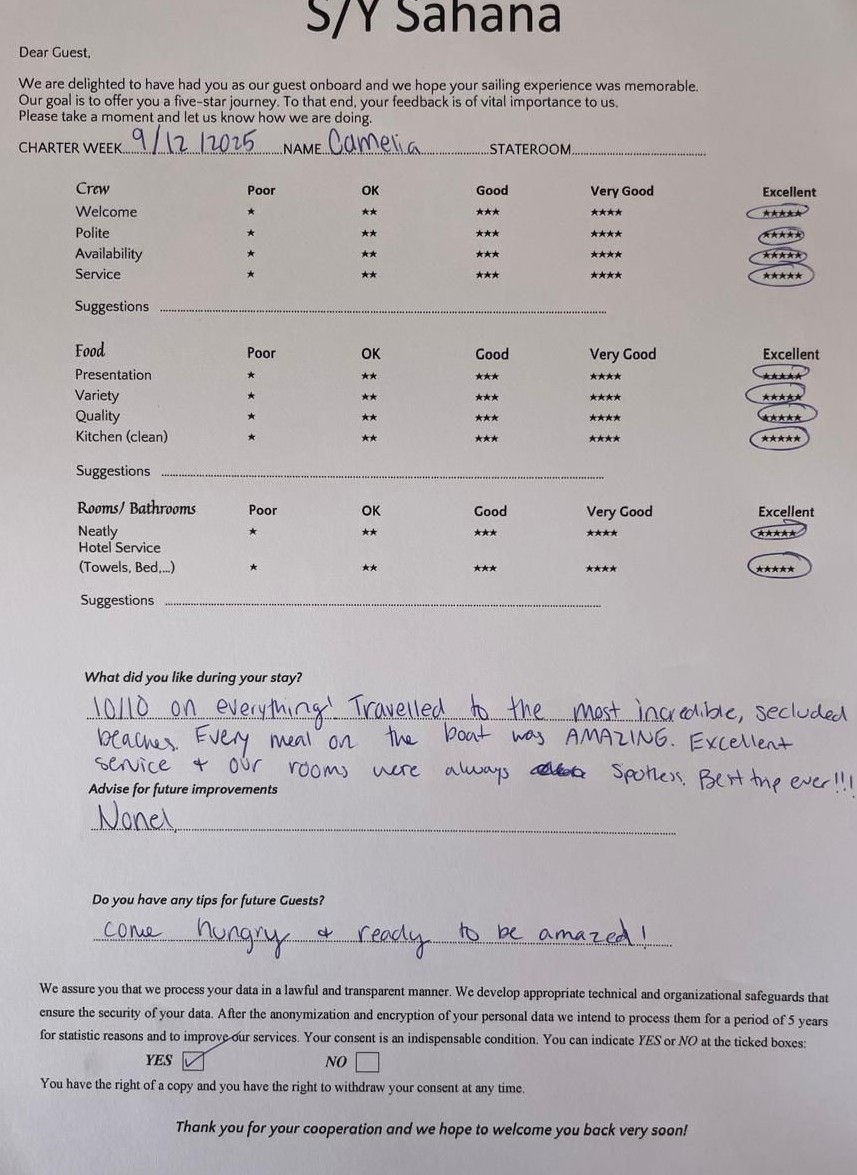 S/Y Sahana
Dear Guest,
We are delighted to have had you as our guest onboard and we hope your sailing experience was memorable.
Our goal is to offer you a five-star journey. To that end, your feedback is of vital importance to us.
Please take a moment and let us know how we are doing.
CHARTER WEEK 9/12/2025 NAME Camelia STATEROOM
Crew Poor OK Good Very Good Excellent
Welcome ★ ★★ ★★★ ★★★★ ★★★★★
Polite ★ ★★ ★★★ ★★★★ ★★★★★
Availability ★ ★★ ★★★ ★★★★ ★★★★★
Service ★ ★★ ★★★ ★★★★ ★★★★★
Suggestions
Food Poor OK Good Very Good Excellent
Presentation ★ ★★ ★★★ ★★★★ ★★★★★
Variety ★ ★★ ★★★ ★★★★ ★★★★★
Quality ★ ★★ ★★★ ★★★★ ★★★★★
Kitchen (clean) ★ ★★ ★★★ ★★★★ ★★★★★
Suggestions
Rooms/ Bathrooms Poor OK Good Very Good Excellent
Neatly ★ ★★ ★★★ ★★★★ ★★★★★
Hotel Service
(Towels, Bed,...) ★ ★★ ★★★ ★★★★ ★★★★★
Suggestions
What did you like during your stay?
10/10 on everything! Travelled to the most incredible, secluded
beaches. Every meal on the boat was AMAZING. Excellent
service + our rooms were always spotless. Best trip ever!!!
Advise for future improvements
None!
Do you have any tips for future Guests?
come hungry + ready to be amazed!
We assure you that we process your data in a lawful and transparent manner. We develop appropriate technical and organizational safeguards that
ensure the security of your data. After the anonymization and encryption of your personal data we intend to process them for a period of 5 years
for statistic reasons and to improve our services. Your consent is an indispensable condition. You can indicate YES or NO at the ticked boxes:
YES ☑ NO ☐
You have the right of a copy and you have the right to withdraw your consent at any time.
Thank you for your cooperation and we hope to welcome you back very soon!